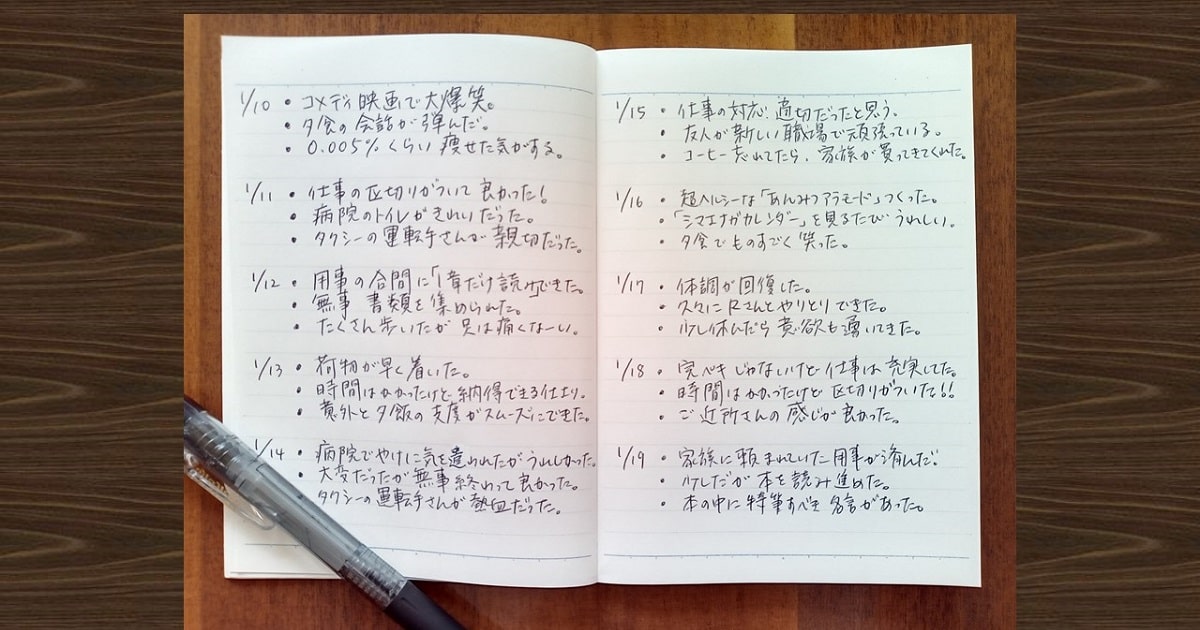 1/10 ・コメディ映画で大爆笑。
・夕食の会話が弾んだ。
・0.005%くらい痩せた気がする。
1/11 ・仕事の区切りがついて良かった!
・病院のトイレがきれいだった。
・タクシーの運転手さんが親切だった。
1/12 ・用事の合間に「1章だけ読み」できた。
・無事書類を集められた。
・たくさん歩いたが足は痛くなーい。
1/13 ・荷物が早く着いた。
・時間はかかったけど納得できる仕上り。
・意外と夕飯の支度がスムーズにできた。
1/14 ・病院でやけに気を遣われたがうれしかった。
・大変だったが無事終わって良かった。
・タクシーの運転手さんが熱血だった。
1/15 ・仕事の対応、適切だったと思う。
・友人が新しい職場で頑張っている。
・コーヒー忘れてたら、家族が買ってきてくれた。
1/16 ・超ヘルシーな「あんみつアラモード」つくった。
・「シマエナガカレンダー」を見るたびうれしい。
・夕食でものすごく笑った。
1/17 ・体調が回復した。
・久々にRさんとやりとりできた。
・少し休んだら意欲も湧いてきた。
1/18 ・完ペキじゃないけど仕事は充実してた。
・時間はかかったけど区切りがついた!!
・ご近所さんの感じが良かった。
1/19 ・家族に頼まれていた用事が済んだ。
・少しだが本を読み進めた。
・本の中に特筆すべき名言があった。